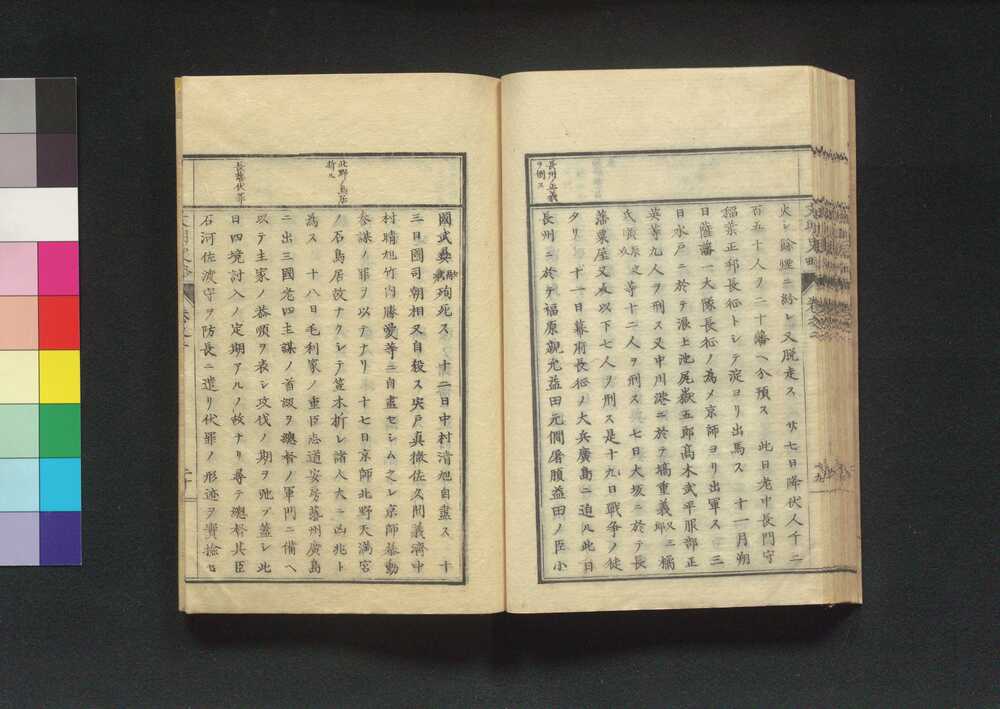 長州ノ正義
ヲ倒ス
火シ餘煙ニ紛レ又脱走ス 廿七日降伏人千二
百五十人ヲ二十藩ヘ分預ス 此日老中長門守
稲葉正邦長征トシテ淀ヨリ出馬ス 十一月朔
日薩藩一大隊長征ノ為メ京師ヨリ出軍ス 三
日水戸ニ於テ漲上池尻嶽五郎高木武平服部正
英等九人ヲ刑ス又中川港ニ於テ橋重義郎又三橘
等十二人ヲ刑ス 七日大坂ニ於テ長
藩粟屋又成以下七人ヲ刑ス是十九日戦争ノ徒
タリ 十一日幕府長征ノ大兵廣島ニ迫ル此日
長州ニ於テ福原親允益田元僴屠腹益田ノ臣小
北野ノ鳥居
折ル
國武曷殉死ス 十二日中村清旭自盡ス 十
三日國司朝相又自殺ス宍戸真澂佐久間義濟中
村晴旭竹内勝愛等ニ自盡セシム之レ京師暴動
参謀ノ罪ヲ以テナリ 十七日京師北野天満宮
ノ石鳥居故ナクシテ笠木折レ諸人大ニ凶兆ト
為ス 十八日毛利家ノ重臣志道安房藝州廣島
ニ出三國老四主謀ノ首級ヲ總督ノ軍門ニ備ヘ
以テ主家ノ恭順ヲ表シ攻伐ノ期ヲ弛ブ蓋シ此
日四境討入ノ定期アルノ故ナリ尋テ總督其臣
石河佐渡守ヲ防長ニ遣リ伏罪ノ形迹ヲ實撿セ